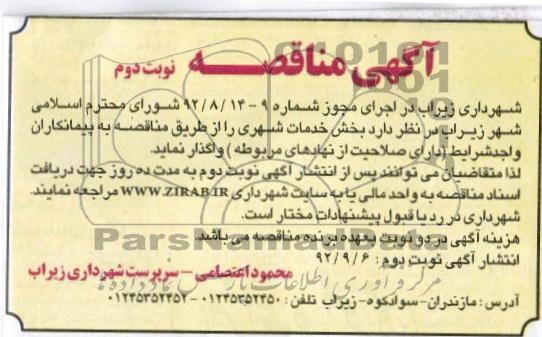 آگهی مناقصه نوبت دوم
شهرداری زیراب در اجرای مجوز شماره ۹-۹۲/۸/۱۴ شورای محترم اسلامی
شهر زیراب در نظر دارد بخش خدمات شهری را از طریق مناقصه به پیمانکاران
واجدشرایط (دارای صلاحیت از نهادهای مربوطه) واگذار نماید.
لذا متقاضیان می توانند پس از انتشار آگهی نوبت دوم به مدت ده روز جهت دریافت
اسناد مناقصه به واحد مالی یا به سایت شهرداری WWW.ZIRAB.IR مراجعه نمایند.
شهرداری در رد یا قبول پیشنهادات مختار است.
هزینه آگهی در دو نوبت بعهده برنده مناقصه می باشد.
انتشار آگهی نوبت دوم: ۹۲/۹/۶
محمود اعتصامی - سرپرست شهرداری زیراب
آدرس: مازندران-سوادکوه-زیراب تلفن: ۰۱۲۴۵۳۵۲۴۵۰-۰۱۲۴۵۳۵۲۴۵۲
ParsNamadData
مرکز فرآوری اطلاعات پارس نماد داده ها